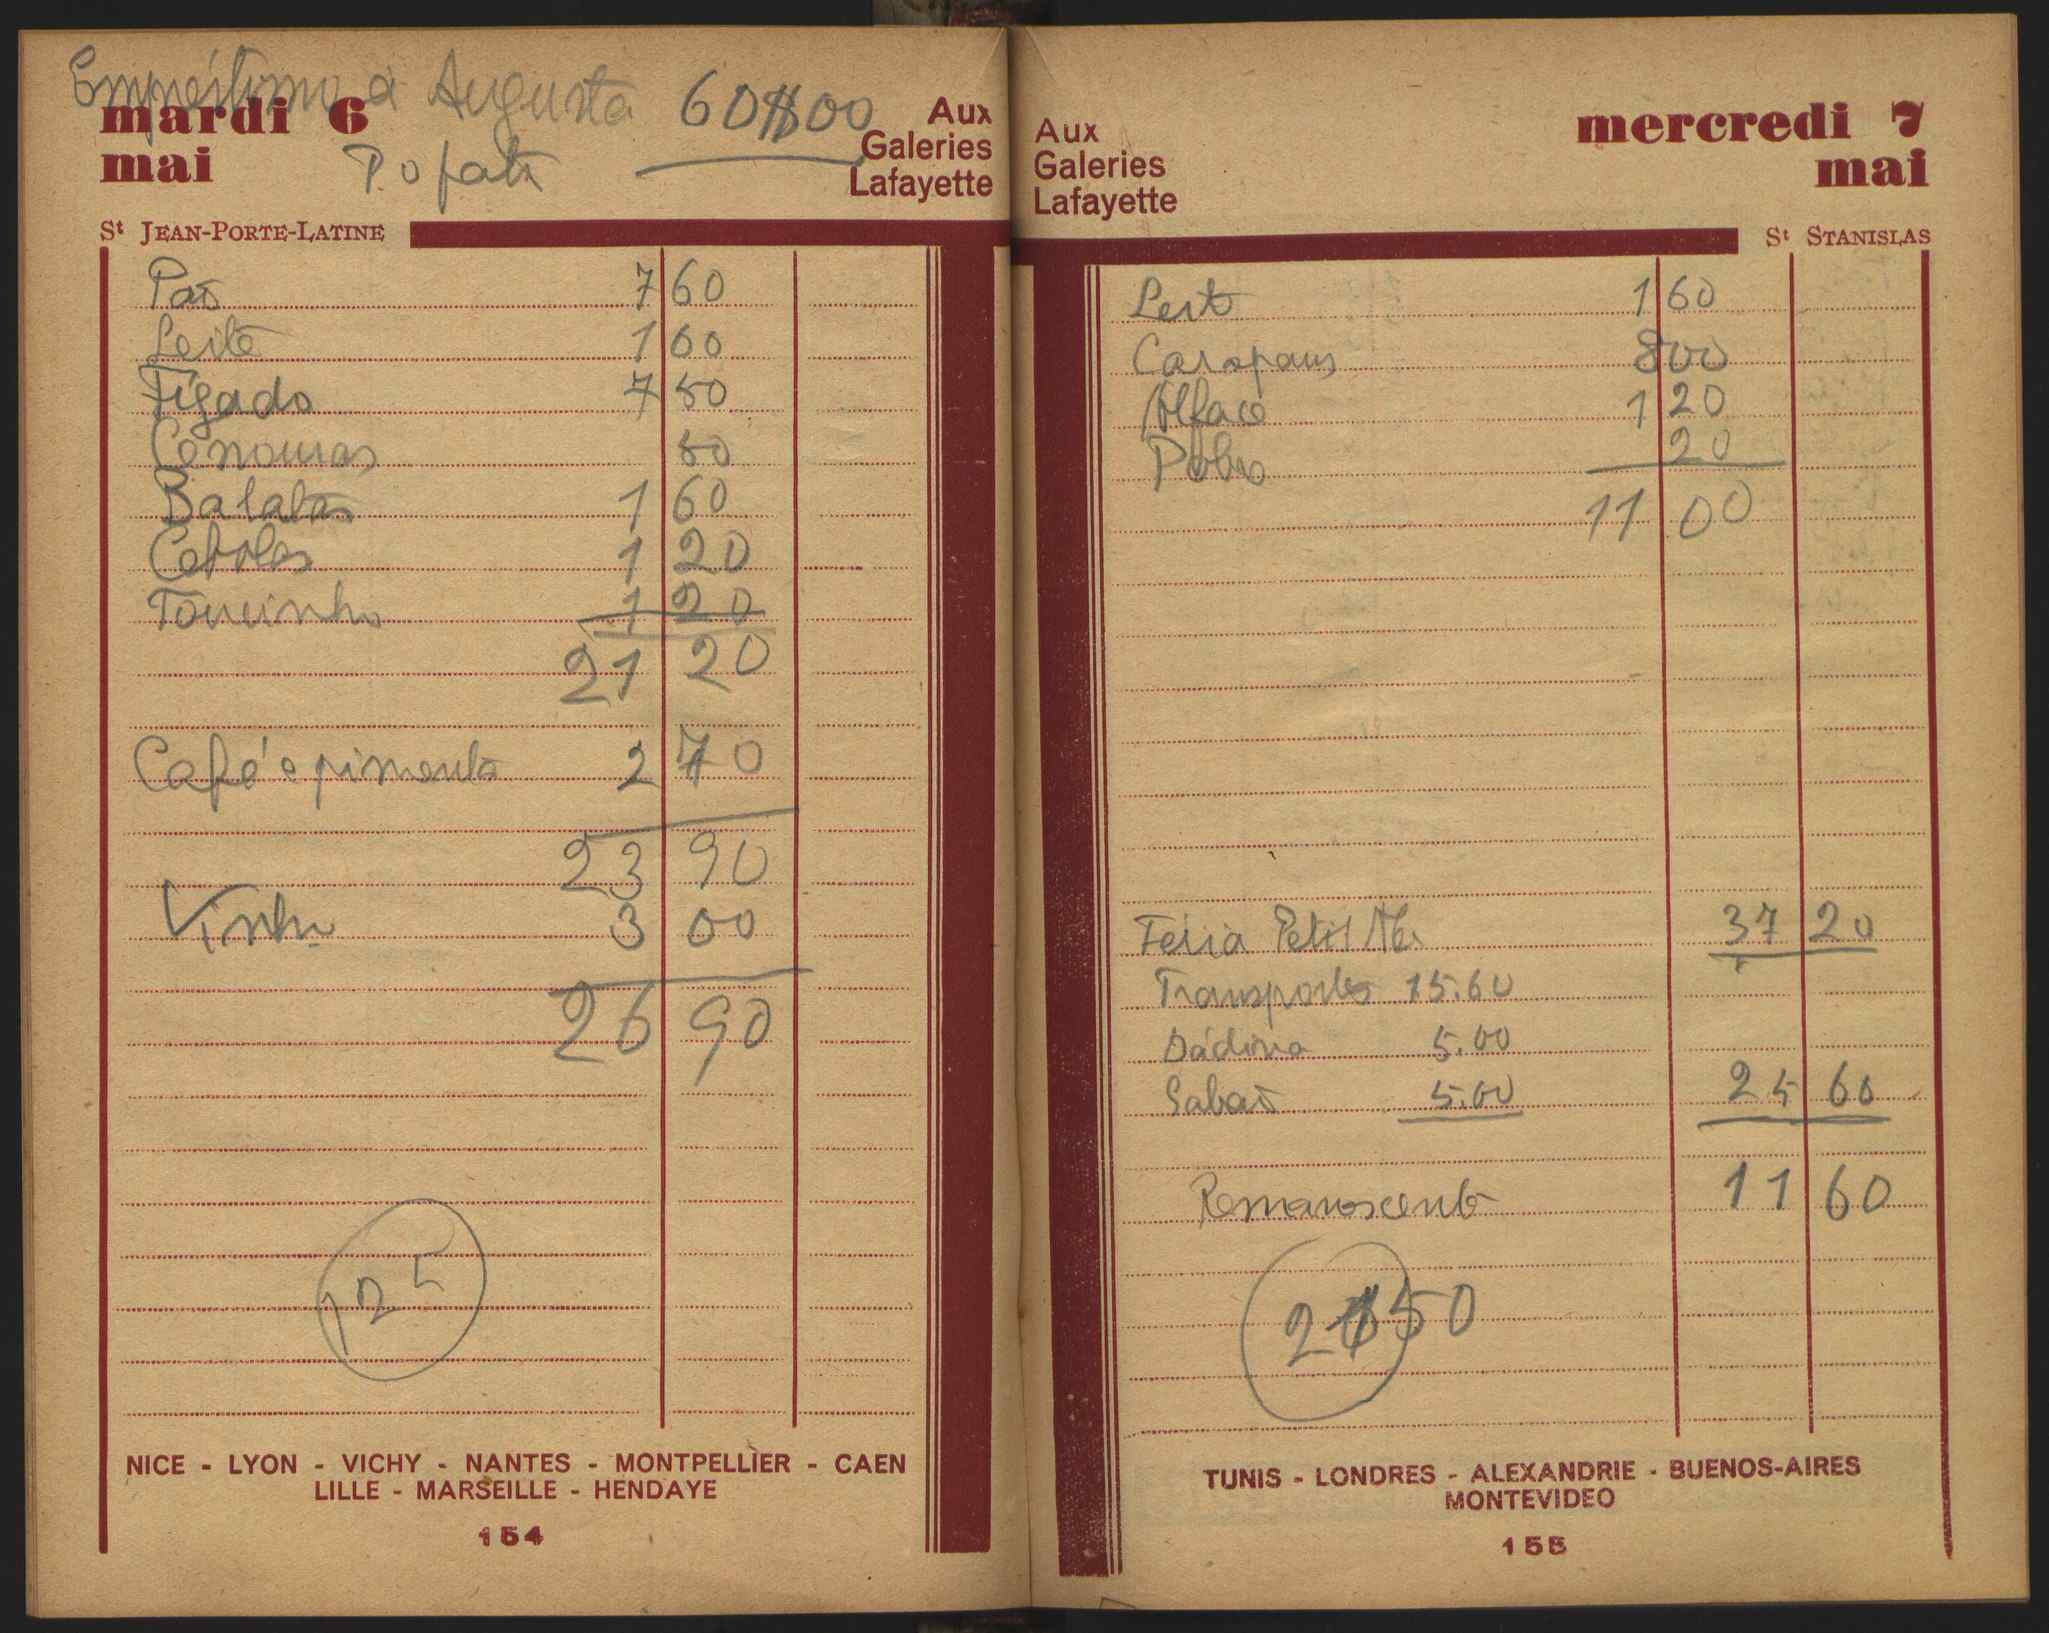 Empréstimo à Augusta 60$00
mardi 6
mai
P. o fato
Aux
Galeries
Lafayette
St JEAN-PORTE-LATINE
Pão 7 60
Leite 1 60
Fígado 7 50
Cenouras 50
Batatas 1 60
Cebolas 1 20
Toucinho 1 20
21 20
Café e pimenta 2 70
23 90
Vinho 3 00
26 90
125
NICE - LYON - VICHY - NANTES - MONTPELLIER - CAEN
LILLE - MARSEILLE - HENDAYE
154
Aux
Galeries
Lafayette
mercredi 7
mai
St STANISLAS
Leite 1 60
Carapaus 8 00
Alface 1 20
Pobre 20
11 00
Feria Petit 37 20
Transportes 15.60
Dádiva 5.00
Sabão 5.00 25 60
Remanescente 11 60
2$50
TUNIS - LONDRES - ALEXANDRIE - BUENOS-AIRES
MONTEVIDEO
155